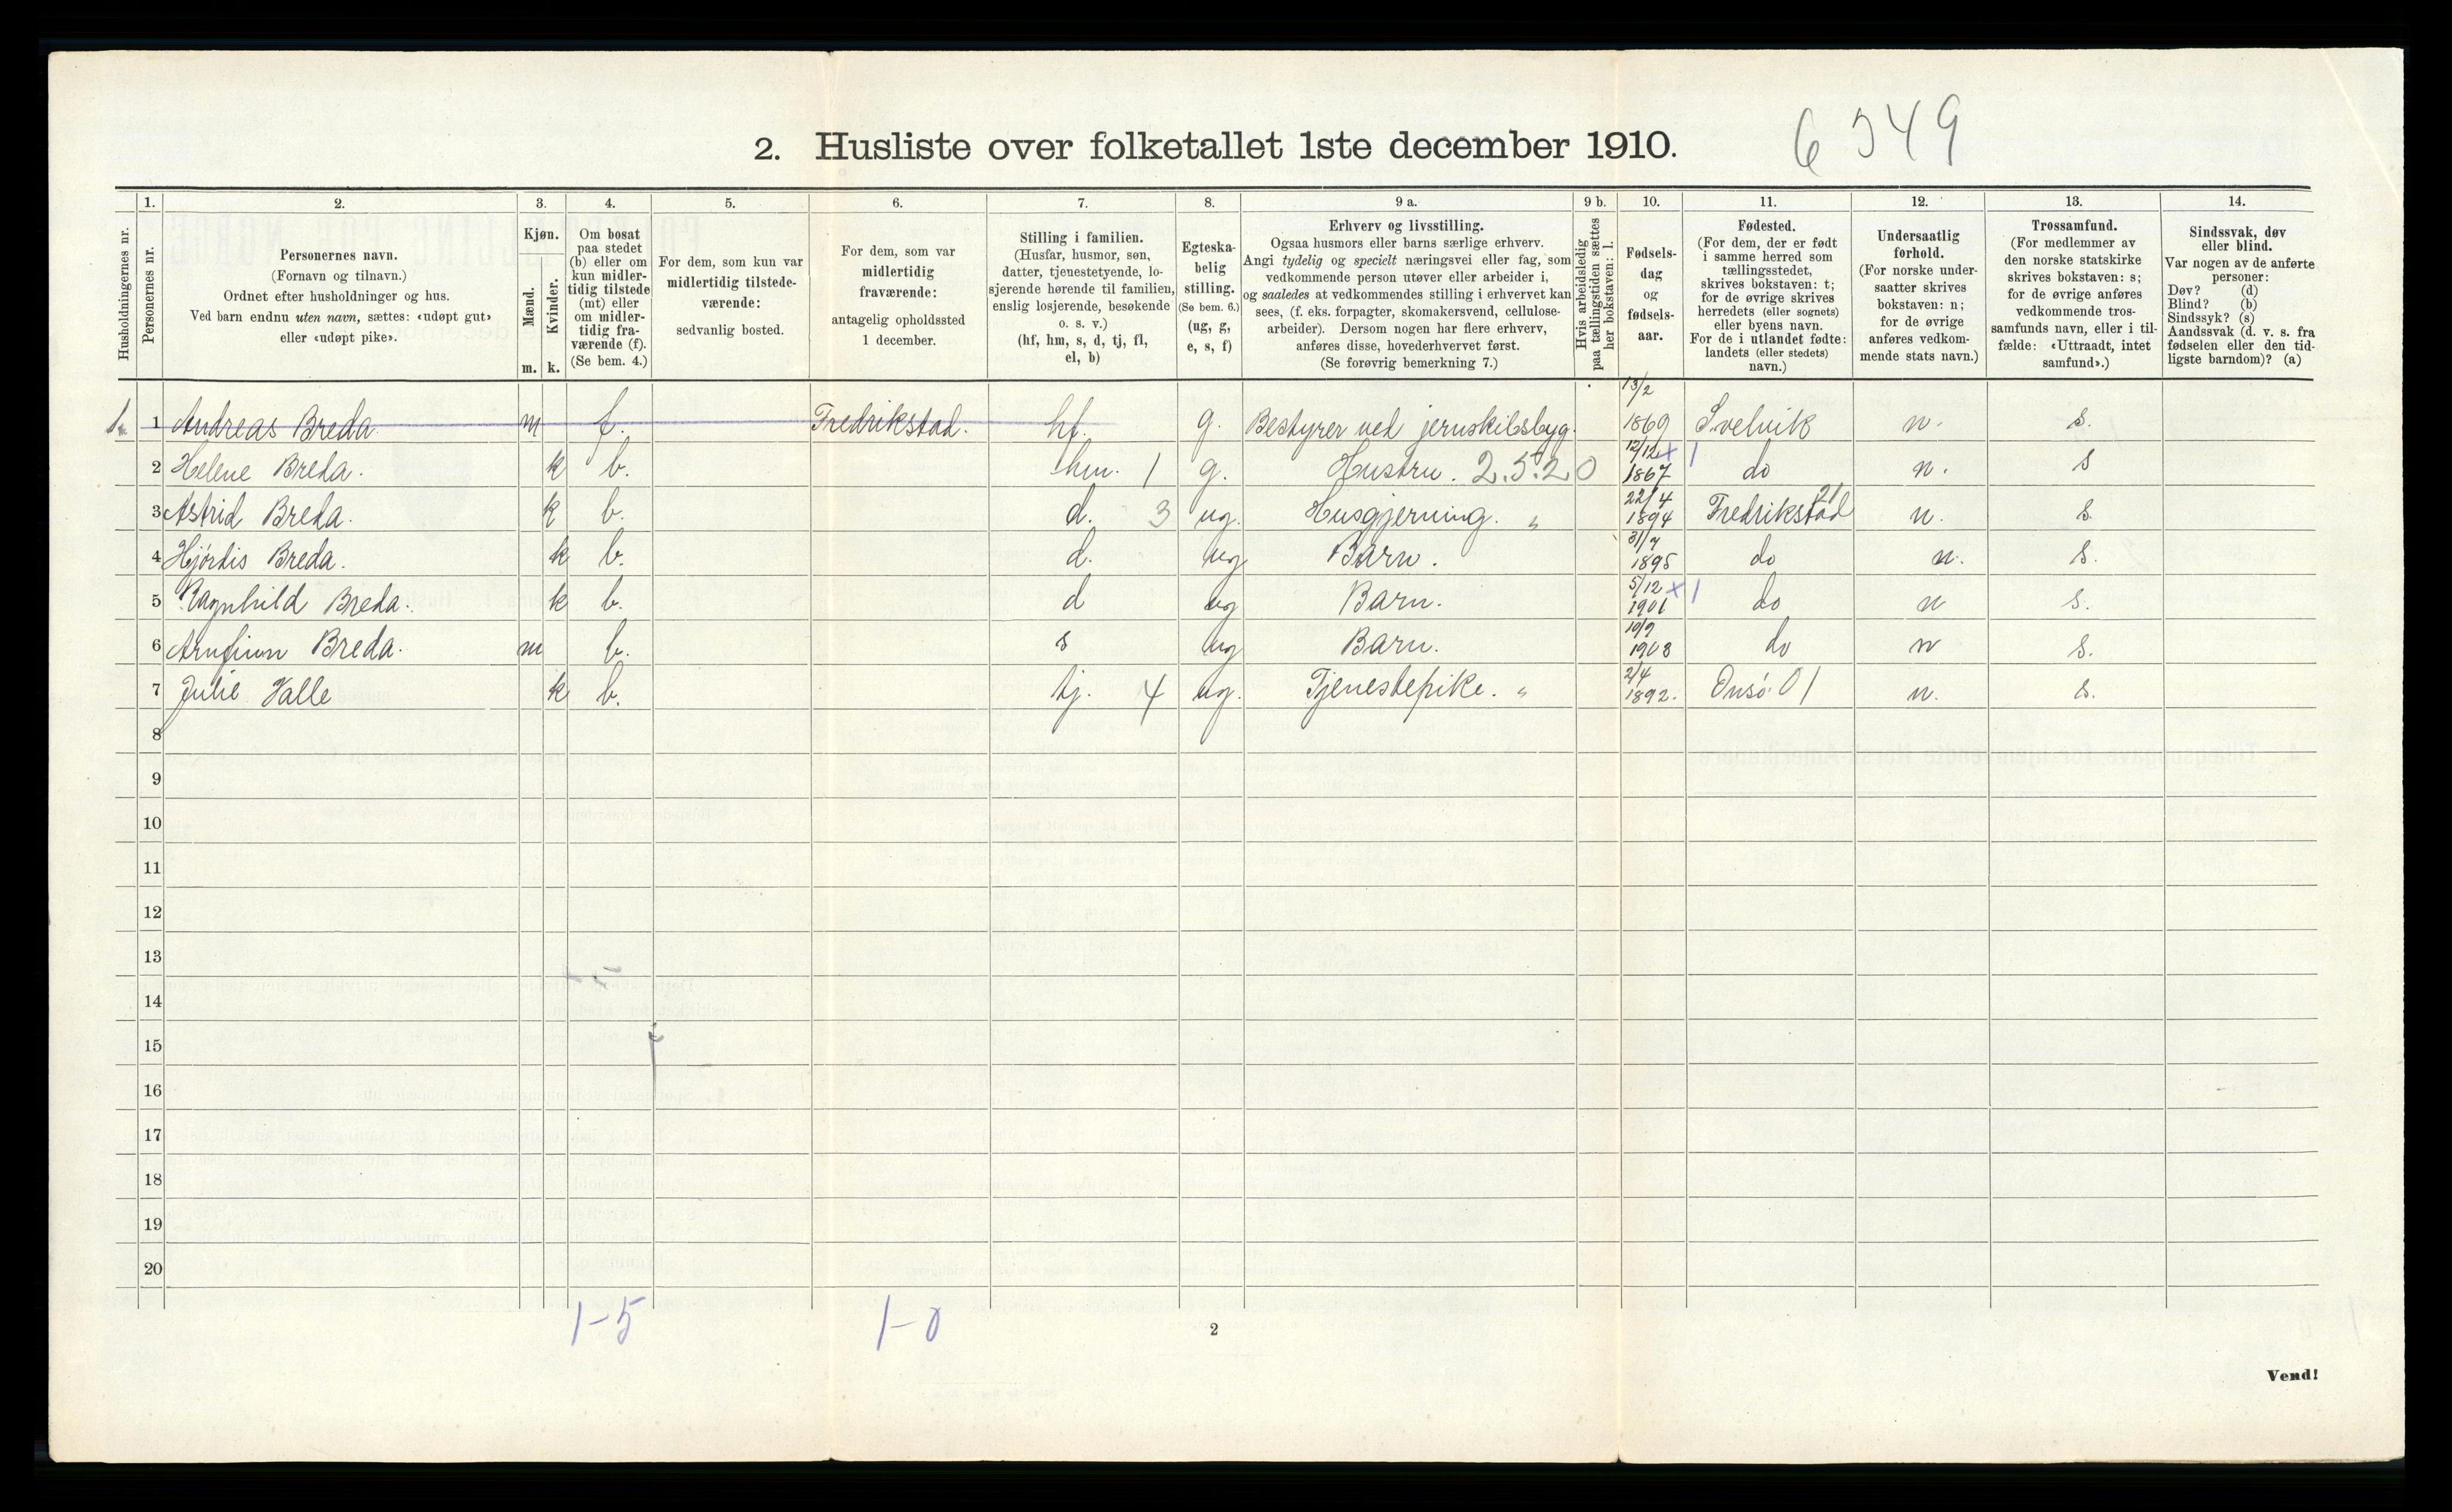 6549
2. Husliste over folketallet 1ste december 1910.
1. 2. 3. 4. 5. 6. 7. 8. 9 a. 9 b. 10. 11. 12. 13. 14.
Husholdningernes nr.
Personernes nr.
Personernes navn.
(Fornavn og tilnavn.)
Ordnet efter husholdninger og hus.
Ved barn endnu uten navn, sættes: «udøpt gut»
eller «udøpt pike».
Kjøn.
Mænd.
Kvinder.
m. k.
Om bosat
paa stedet
(b) eller om
kun midler-
tidig tilstede
(mt) eller
om midler-
tidig fra-
værende (f).
(Se bem. 4.)
For dem, som kun var
midlertidig tilstede-
værende:
sedvanlig bosted.
For dem, som var
midlertidig
fraværende:
antagelig opholdssted
1 december.
Stilling i familien.
(Husfar, husmor, søn,
datter, tjenestetyende, lo-
sjerende hørende til familien,
enslig losjerende, besøkende
o. s. v.)
(hf, hm, s, d, tj, fl,
el, b)
Egteska-
belig
stilling.
(Se bem. 6.)
(ug, g,
e, s, f)
Erhverv og livsstilling.
Ogsaa husmors eller barns særlige erhverv.
Angi tydelig og specielt næringsvei eller fag, som
vedkommende person utøver eller arbeider i,
og saaledes at vedkommendes stilling i erhvervet kan
sees, (f. eks. forpagter, skomakersvend, cellulose-
arbeider). Dersom nogen har flere erhverv,
anføres disse, hovederhvervet først.
(Se forøvrig bemerkning 7.)
Hvis arbeidsledig
paa tællingstiden sættes
her bokstaven: l.
Fødsels-
dag
og
fødsels-
aar.
Fødested.
(For dem, der er født
i samme herred som
tællingsstedet,
skrives bokstaven: t;
for de øvrige skrives
herredets (eller sognets)
eller byens navn.
For de i utlandet fødte:
landets (eller stedets)
navn.)
Undersaatlig
forhold.
(For norske under-
saatter skrives
bokstaven: n;
for de øvrige
anføres vedkom-
mende stats navn.)
Trossamfund.
(For medlemmer av
den norske statskirke
skrives bokstaven: s;
for de øvrige anføres
vedkommende tros-
samfunds navn, eller i til-
fælde: «Uttraadt, intet
samfund».)
Sindssvak, døv
eller blind.
Var nogen av de anførte
personer:
Døv? (d)
Blind? (b)
Sindssyk? (s)
Aandssvak (d. v. s. fra
fødselen eller den tid-
ligste barndom)? (a)
1. 1 Andreas Breda m f. Fredrikstad. hf. g. Bestyrer ved jernskibsbyg. 13/2 1869 Svelvik n. s.
2 Helene Breda. k b. hm. 1 g. Hustru. 2.5.2.0 12/12 x 1867 1 do n. s
3 Astrid Breda. k b. d. 3 ug. Husgjerning. " 22/4 1894 Fredrikstad 21 n. s.
4 Hjórdis Breda. k b. d. ug Barn. 31/7 1895 do n. s.
5 Ragnhild Breda. k b. d ug Barn. 5/12 x 1901 1 do n s.
6 Arnfinn Breda. m b. s ug Barn. 10/9 1903 do n s.
7 Julie Halle k b. tj. 4 ug. Tjenestepike. " 2/4 1892. Onsó. 01 n. s.
8
9
10
11
12
13
14
15
16
17
18
19
20
1-5 1-0
2
Vend!